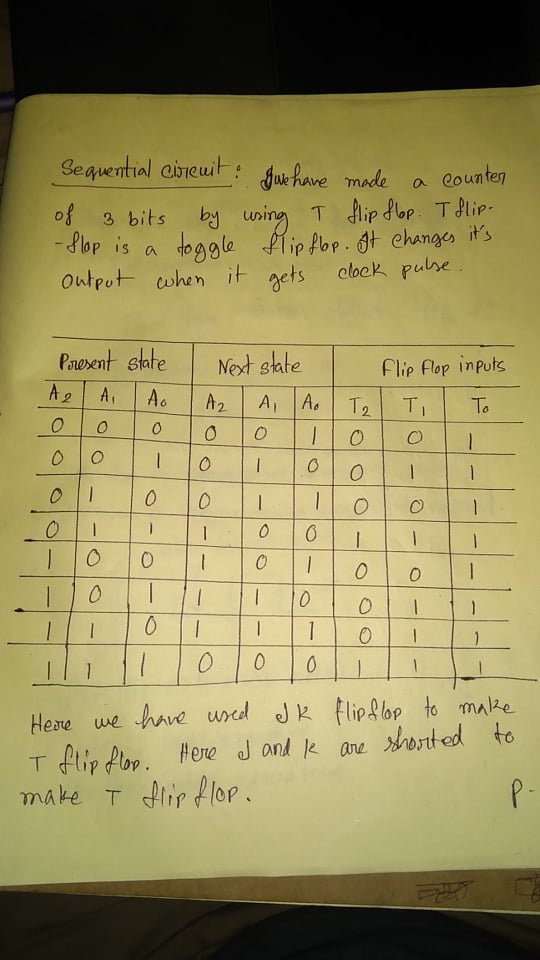 Sequential circuit: we have made a counter
of 3 bits by using T flip flop. T flip-
-flop is a toggle flip flop. It changes it's
output when it gets clock pulse.
Present state Next state Flip flop inputs
A2 A1 A0 A2 A1 A0 T2 T1 T0
0 0 0 0 0 1 0 0 1
0 0 1 0 1 0 0 1 1
0 1 0 0 1 1 0 0 1
0 1 1 1 0 0 1 1 1
1 0 0 1 0 1 0 0 1
1 0 1 1 1 0 0 1 1
1 1 0 1 1 1 0 1 1
1 1 1 0 0 0 1 1 1
Here we have used JK flipflop to make
T flip flop. Here J and k are shorted to
make T flip flop.
P-